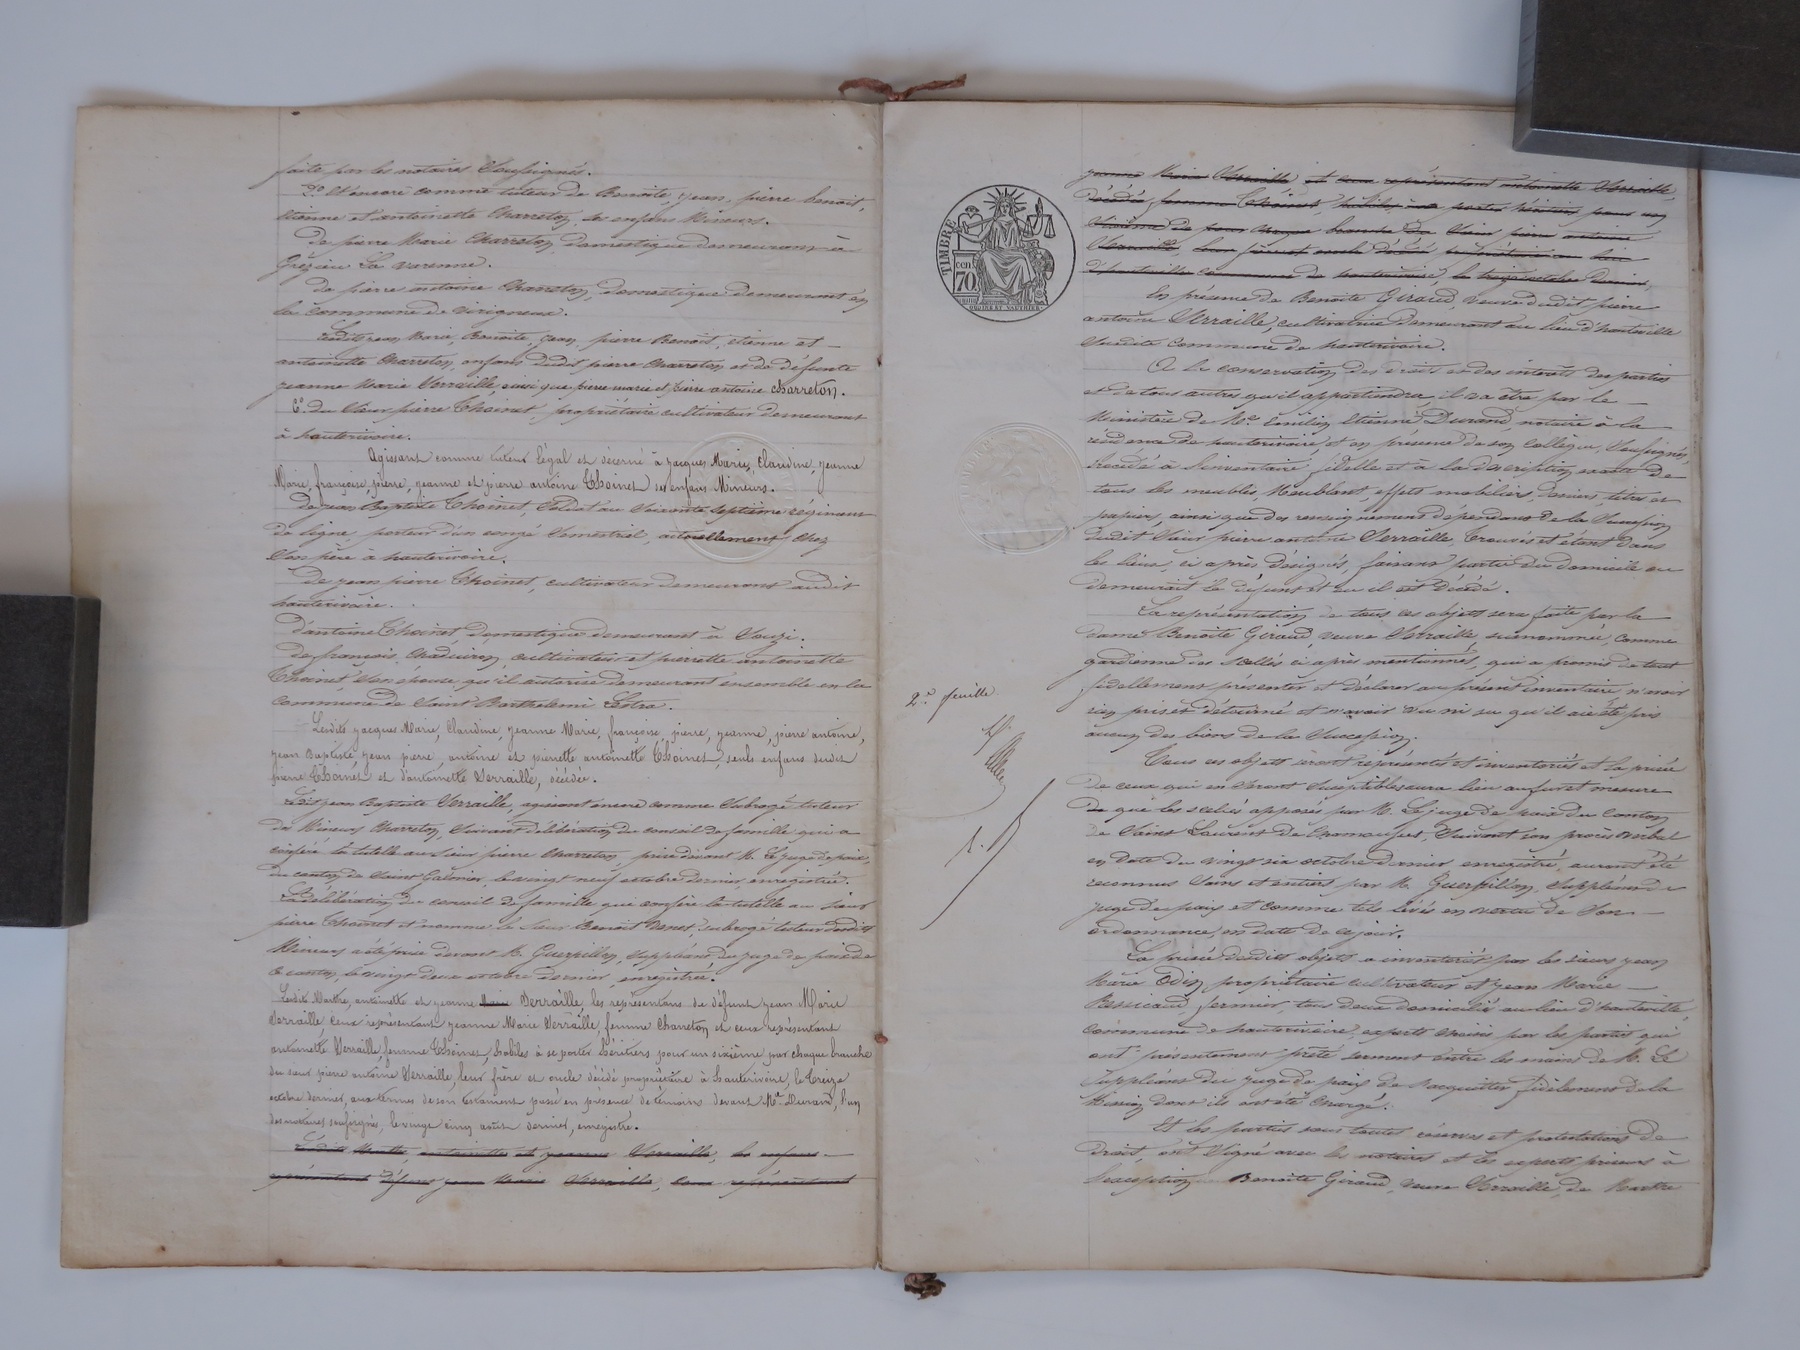 faite par les notaires soussignés.
2º Et encore comme tuteur de Benoite, jean, pierre benoit,
étienne et antoinette Charreton, ses enfans Mineurs.
De pierre Marie Charreton, domestique demeurant à
Grézieu La Varenne.
De pierre antoine Charreton, domestique demeurant en
la commune de Virigneux.
Lesdits jean Marie, Benoite, jean, pierre Benoit, étienne et
antoinette Charreton, enfans dudit pierre Charreton et de défunte
jeanne Marie Verraille, ainsi que pierre marie et pierre antoine Charreton.
6º du Sieur pierre Thoinet, propriétaire cultivateur demeurant
à hauterivoire.
Agissant comme tuteur légal et décerné à jacques Marie, Claudine, jeanne
Marie, françoise, pierre, jeanne et pierre antoine Thoinet ses enfans Mineurs.
De jean Baptiste Thoinet, Soldat au Soixante septième régiment
de ligne, porteur d'un congé Semestriel, actuellement chez
Son père à hauterivoire.
De jean pierre Thoinet, cultivateur demeurant audit
hauterivoire.
D'antoine Thoinet, domestique demeurant à Souzi.
De françois Chaduiron, cultivateur et pierrette antoinette
Thoinet, Son épouse, qu'il autorise demeurant ensemble en la
commune de Saint Barthelemi Lestra.
Lesdits jacques Marie, Claudine, jeanne Marie, françoise, pierre, jeanne, pierre antoine,
jean Baptiste jean pierre, antoine et pierrette antoinette Thoinet, seuls enfans dudit
pierre Thoinet et d'antoinette Verraille, décédée.
Ledit jean Baptiste Verraille, agissant encore comme Subrogé tuteur
des Mineurs Charreton, Suivant délibération du conseil de famille qui a
conféré la tutelle au Sieur pierre Charreton, prise devant M. Le juge de paix
du canton de Saint Galmier, le vingt neuf octobre dernier, enregistrée.
La délibération du conseil de famille qui confère la tutelle au Sieur
pierre Thoinet et nomme le Sieur Benoit Venet, Subrogé tuteur desdits
Mineurs a été prise devant M. Guerpillon, Suppléant du juge de paix de
ce canton, le vingt deux octobre dernier, enregistrée.
Lesdits Marthe, antoinette et jeanne Marie Verraille, les représentans de défunt jean Marie
Verraille, Ceux représentant jeanne Marie Verraille, femme Charreton et ceux représentant
antoinette Verraille femme Thoinet, habiles à se porter héritiers pour un sixième par chaque branche
du sieur pierre antoine Verraille, leur frère et oncle décédé propriétaire à hauterivoire, le treize
octobre dernier, aux termes de son testament passé en présence de témoins devant Me Durand, l'un
des notaires soussignés, le vingt cinq août dernier, enregistré.
Lesdits Marthe, antoinette et jeanne Verraille, les enfans
représentant défunt jean Marie Verraille, Ceux représentant
TIMBRE
70 cen
2e feuille
jeanne Marie Verraille et ceux représentant antoinette Verraille,
Décédée femme Thoinet, habiles à se porter héritiers pour un
sixième de pour chaque branche du Sieur pierre antoine
Verraille, leur frère et oncle décédé propriétaire au lieu
d'hauteville commune de hauterivoire, le treize octobre dernier,
En présence de Benoite Giraud, veuve dudit pierre
antoine Verraille, cultivatrice demeurant au lieu d'hauteville
Susdite commune de hauterivoire.
A la conservation des droits et des intérêts des parties
et de tous autres qu'il appartiendra, il va être par le
Ministère de Me Emilien Etienne Durand, notaire à la
résidence de hauterivoire, et en présence de son Collègue, Soussignés,
procédé à l'inventaire fidelle et à la description exacte de
tous les meubles, Meublant, effets mobiliers, deniers, titres et
papiers, ainsi que des renseignemens dépendans de la Succession
dudit Sieur pierre antoine Verraille, trouvés et étant dans
les lieux, ci après désignés, faisant partie du domicile où
demeurait le défunt et où il est décédé.
La représentation de tous ces objets sera faite par la
dame Benoite Giraud, veuve Verraille, susnommée, comme
gardienne des scellés ci après mentionnés, qui a promis de tout
fidellement présenter et déclarer au présent inventaire, n'avoir
rien pris et détourné et n'avoir vu ni su qu'il ait été pris
aucun des biens de la Succession.
Tous ces objets seront représentés et inventoriés et la prisée
de ceux qui en seront susceptibles aura lieu au fur et mesure
de que les scellés apposés par M. Le juge de paix du canton
de Saint Laurent de Chamousset, Suivant son procès verbal
en date du vingt six octobre dernier enregistré, auront été
reconnus Sains et entiers par M. Guerpillon, Suppléant de
juge de paix et comme tels levés en vertu de Son
ordonnance, en date de ce jour.
La prisée desdits objets a inventorier par les sieurs jean
Marie Odin propriétaire cultivateur et jean Marie
Bessicaud, fermier, tous deux domiciliés au lieu d'hauteville,
commune de hauterivoire, experts choisis par les parties qui
ont présentement prêté serment entre les mains de M. Le
Suppléant du juge de paix de s'acquitter fidèlement de la
Mission dont ils ont été chargé.
Et les parties sous toutes réserves et protestations de
Droit, ont Signé avec les notaires et les experts priseurs à
l'exception Benoite Giraud, veuve Verraille, de Marthe